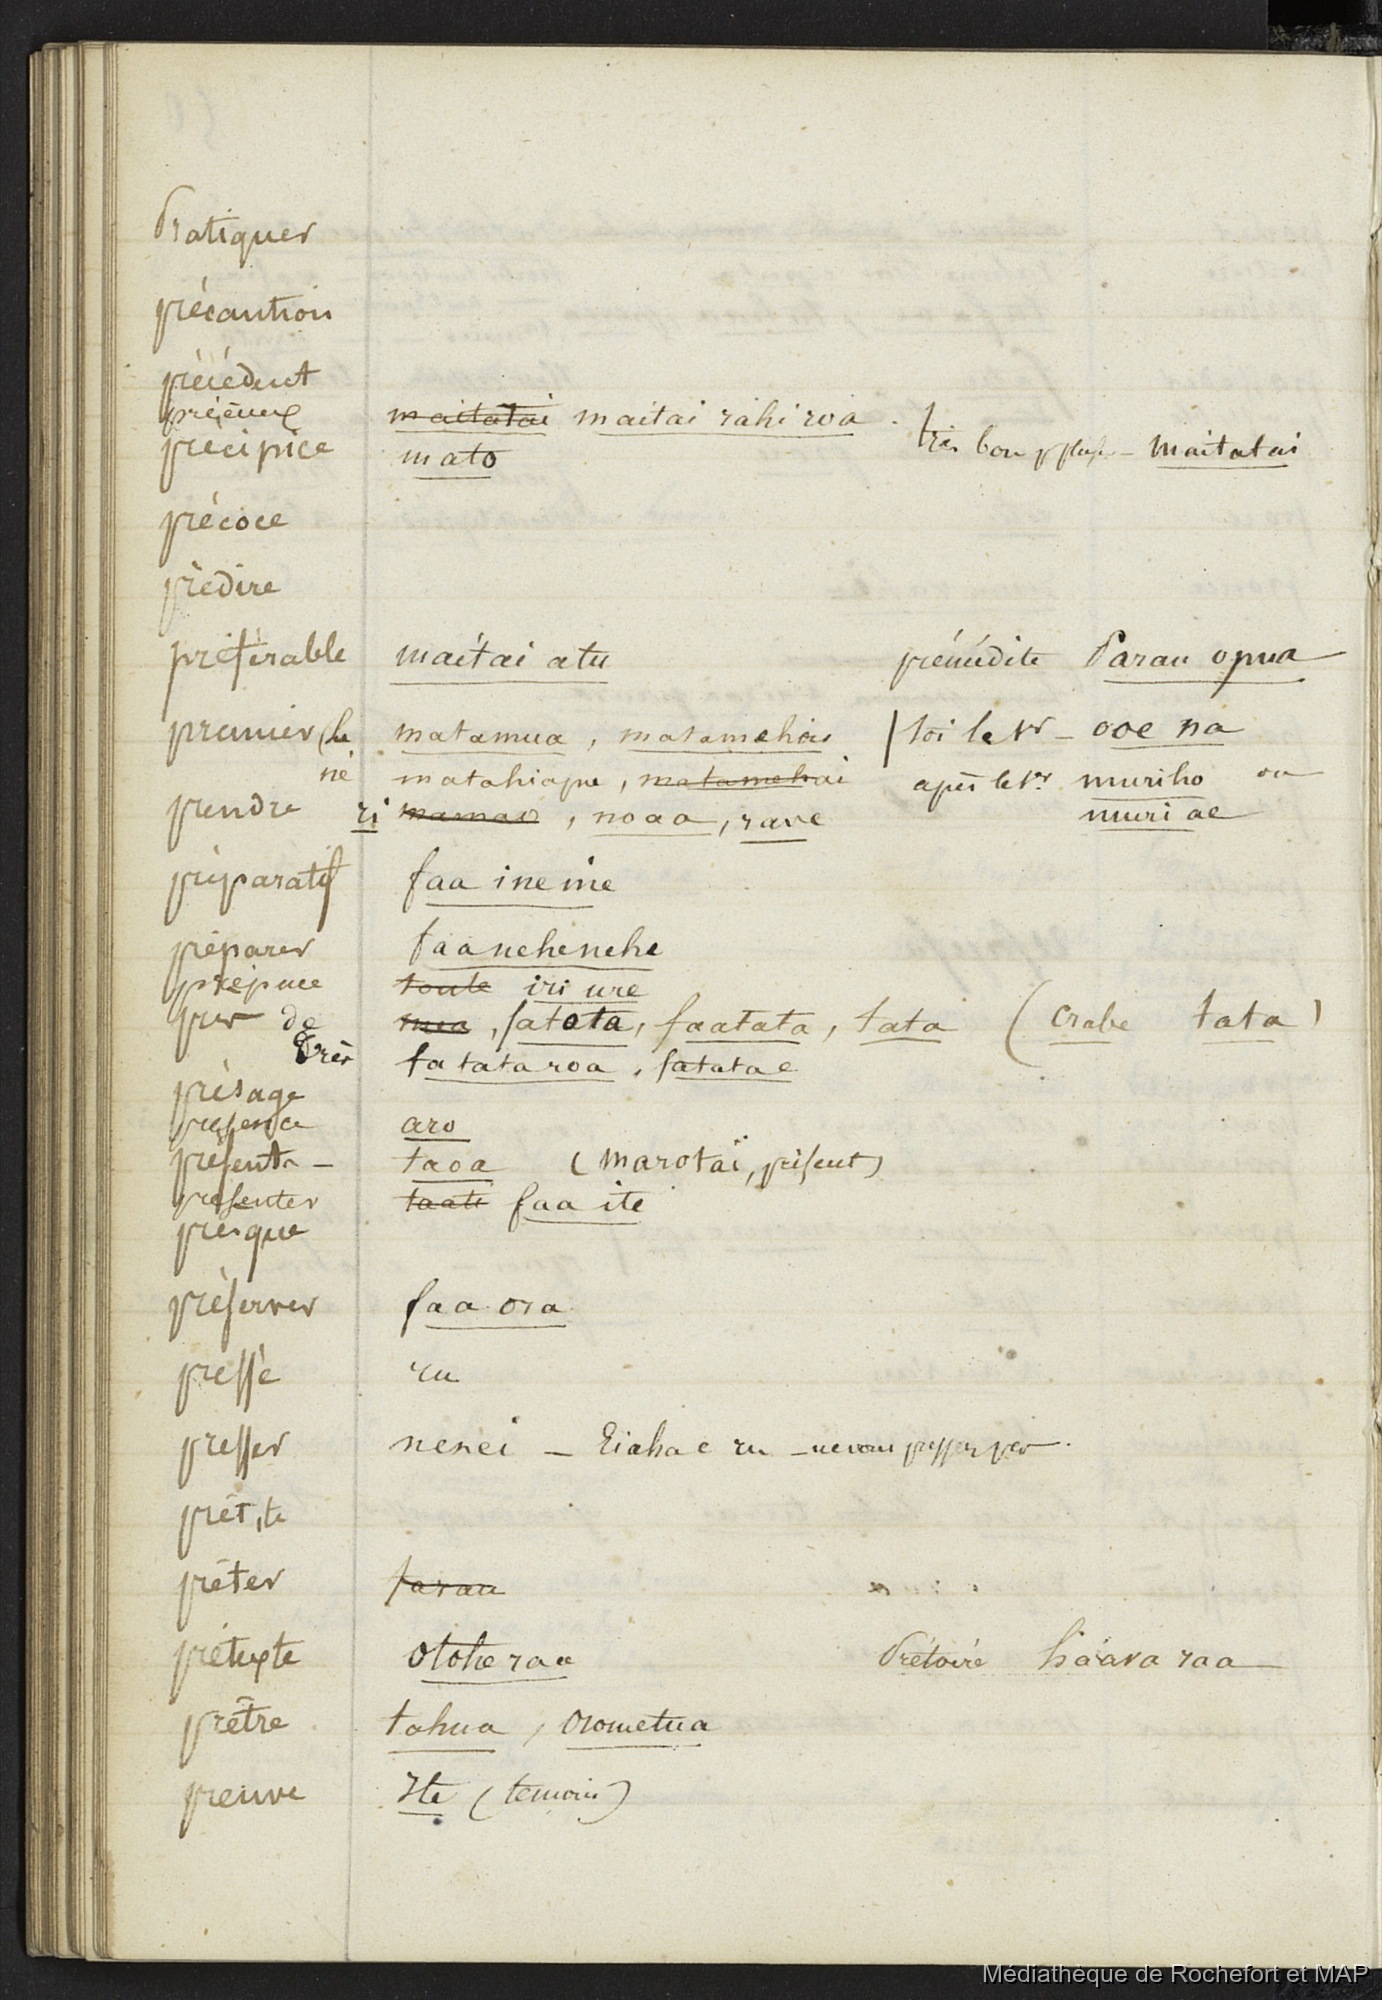 Pratiquer
précaution
précédent
précieux maitatai maitai rahi roa. très bon, plus – maitatai
précipice mato
précoce
prédire
préférable maitai atu prémédité Parau opua
premier (le matamua, matamehai / toi le 1er – ooe na
né matahiapu, matamehai après le 1er muriho ou
prendre ri mamao, noaa, rave muri ae
préparatif faa ineine
préparer faanehenehe
prépuce toule iri ure
près de mea, fatata, faatata, tata (crabe tata)
très fatata roa, fatatae
présage
présence aro
présent – taoa (marotaï, présent)
présenter taati faa ite
presque
préserver faa ora
pressé ru
presser nenei – Eiaha e ru – ne vous pressez pas.
prêt, te
prêter farau
prétexte otohe raa Prétoire háava raa
prêtre tahua, orometua
preuve Ite (temoin)
Médiathèque de Rochefort et MAP